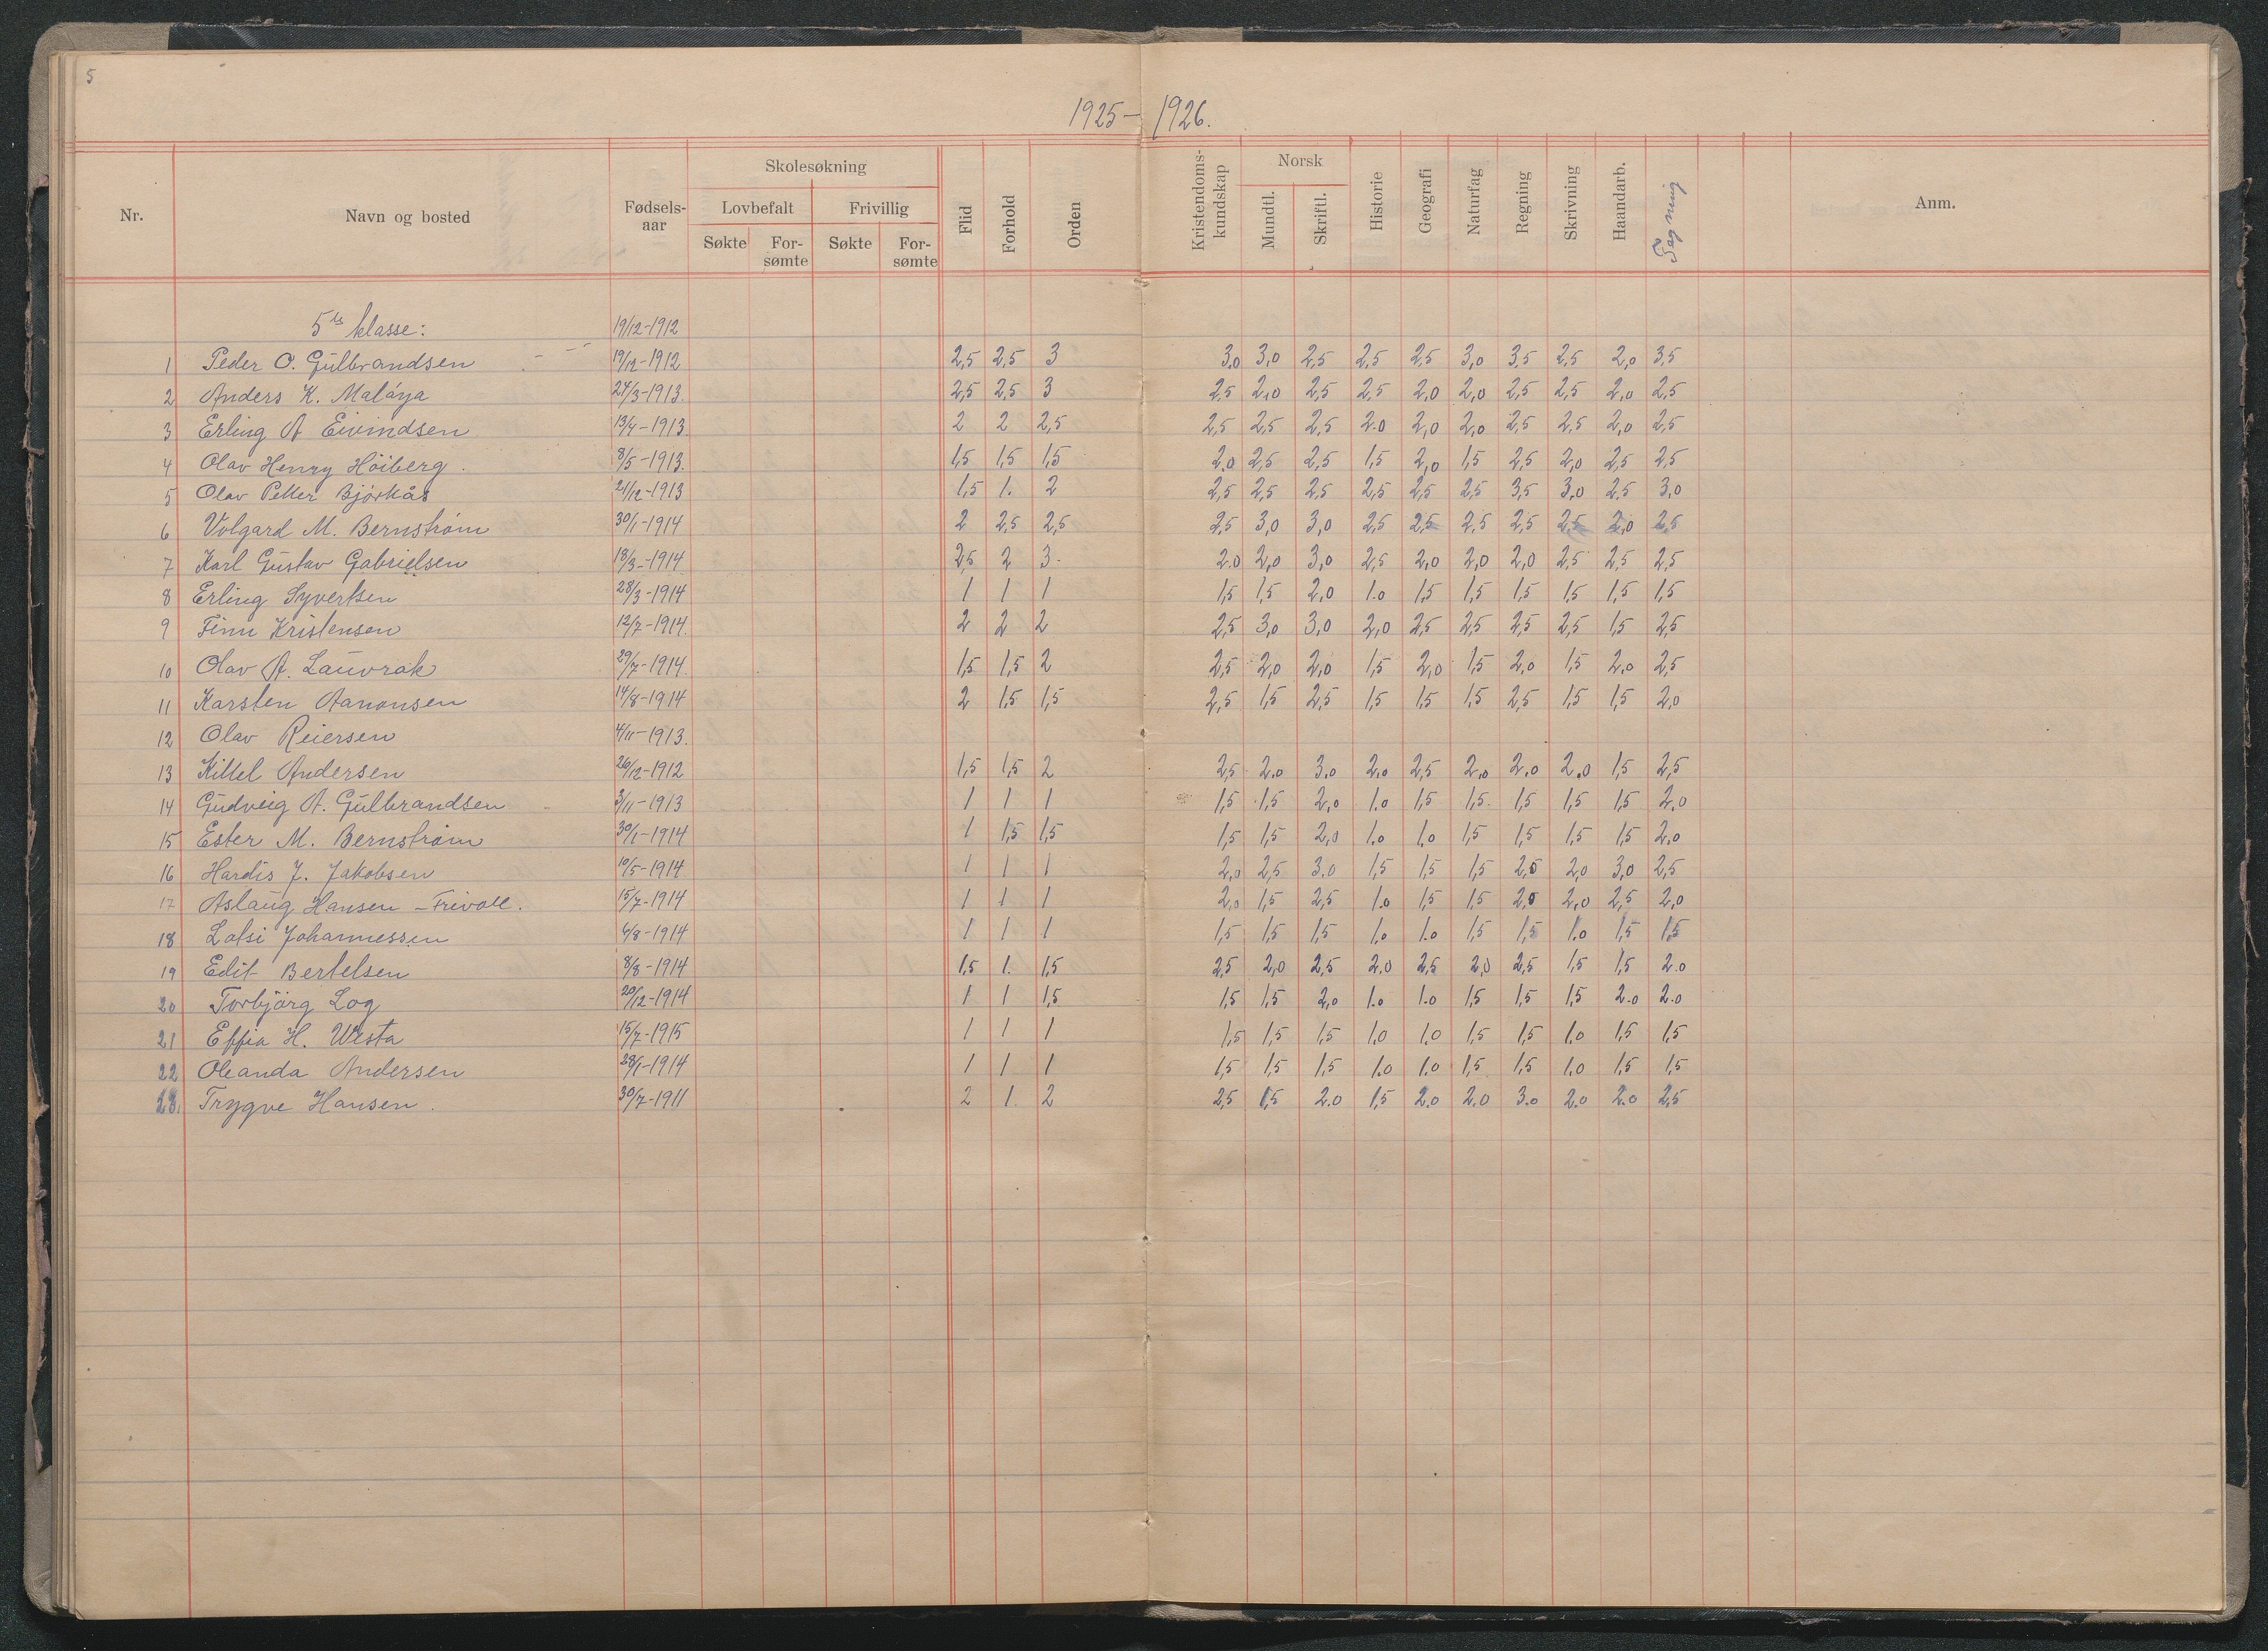 5
1925 – 1926.
Nr. Navn og bosted Fødsels-aar Skolesøkning Lovbefalt Søkte For-sømte Frivillig Søkte For-sømte Flid Forhold Orden Kristendoms-kundskap Norsk Mundtl. Skriftl. Historie Geografi Naturfag Regning Skrivning Haandarb. Tegning Anm.
5te klasse: 19/12-1912
1 Peder O. Gulbrandsen 19/12-1912 2,5 2,5 3 3,0 3,0 2,5 2,5 2,5 3,0 3,5 2,5 2,0 3,5
2 Anders K. Maløya 24/3-1913. 2,5 2,5 3 2,5 2,0 2,5 2,5 2,0 2,0 2,5 2,5 2,0 2,5
3 Erling A Eivindsen 13/4-1913. 2 2 2,5 2,5 2,5 2,5 2.0 2,0 2,0 2,5 2,5 2,0 2,5
4 Olav Henry Höiberg. 8/5-1913. 1,5 1,5 1,5 2.0 2,5 2,5 1,5 2,0 1,5 2,5 2,0 2,5 2,5
5 Olav Petter Bjørkås 21/12-1913 1,5 1. 2 2,5 2,5 2,5 2,5 2,5 2,5 3,5 3,0 2,5 3,0
6 Volgard M. Bernstrøm 30/1-1914 2 2,5 2,5 2,5 3,0 3,0 2,5 2,5 2,5 2,5 2,5 2,0 2,5
7 Karl Gustav Gabrielsen 18/3-1914 2,5 2 3. 2.0 2,0 3,0 2,5 2,0 2,0 2,0 2,5 2,5 2,5
8 Erling Syvertsen 28/3-1914 1 1 1 1,5 1,5 2,0 1.0 1,5 1,5 1,5 1,5 1,5 1,5
9 Finn Kristensen 12/7-1914. 2 2 2 2,5 3,0 3,0 2,0 2,5 2,5 2,5 2,5 1,5 2,5
10 Olav A. Lauvrak 29/7-1914. 1,5 1,5 2 2,5 2,0 2,0 1,5 2,0 1,5 2.0 1,5 2.0 2,5
11 Karsten Aanonsen 14/8-1914 2 1,5 1,5 2,5 1,5 2,5 1,5 1,5 1,5 2,5 1,5 1,5 2,0
12 Olav Reiersen 4/11-1913.
13 Kittel Andersen 26/12-1912 1,5 1,5 2 2,5 2.0 3.0 2.0 2,5 2.0 2.0 2.0 1,5 2,5
14 Gudveig A. Gulbrandsen 3/11-1913 1 1 1 1,5 1,5 2,0 1.0 1,5 1,5. 1,5 1,5 1,5 2.0
15 Ester M. Bernstrøm 30/1-1914 1 1,5 1,5 1,5 1,5 2,0 1.0 1.0 1,5 1,5 1,5 1,5 2.0
16 Hardis J. Jakobsen 10/5-1914 1 1 1 2,0 2,5 3.0 1,5 1,5 1,5 2,5 2,0 3,0 2,5
17 Aslaug Hansen – Frivoll. 15/7-1914 1 1 1 2,0 1,5 2,5 1.0 1,5 1,5 2,0 2,0 2,5 2,0
18 Lofsi Johannessen 6/8-1914 1 1 1 1,5 1,5 1,5 1.0 1.0 1,5 1,5 1.0 1,5 1,5
19 Edit Bertelsen 8/8-1914 1,5 1. 1,5 2,5 2,0 2,5 2.0 2,5 2,0 2,5 1,5 1,5 2.0
20 Torbjörg Log 20/12-1914 1 1 1,5 1,5 1,5 2,0 1.0 1.0 1,5 1,5 1,5 2.0 2.0
21 Effia H. Westa 15/7-1915 1 1 1 1,5 1,5 1,5 1,0 1,0 1,5 1,5 1,0 1,5 1,5
22 Oleanda Andersen 28/1-1914 1 1 1 1,5 1,5 1,5 1.0 1.0 1,5 1,5 1,0 1,5 1,5
23. Trygve Hansen. 30/7-1911 2 1. 2 2,5 1,5 2.0 1,5 2.0 2.0 3.0 2.0 2.0 2,5